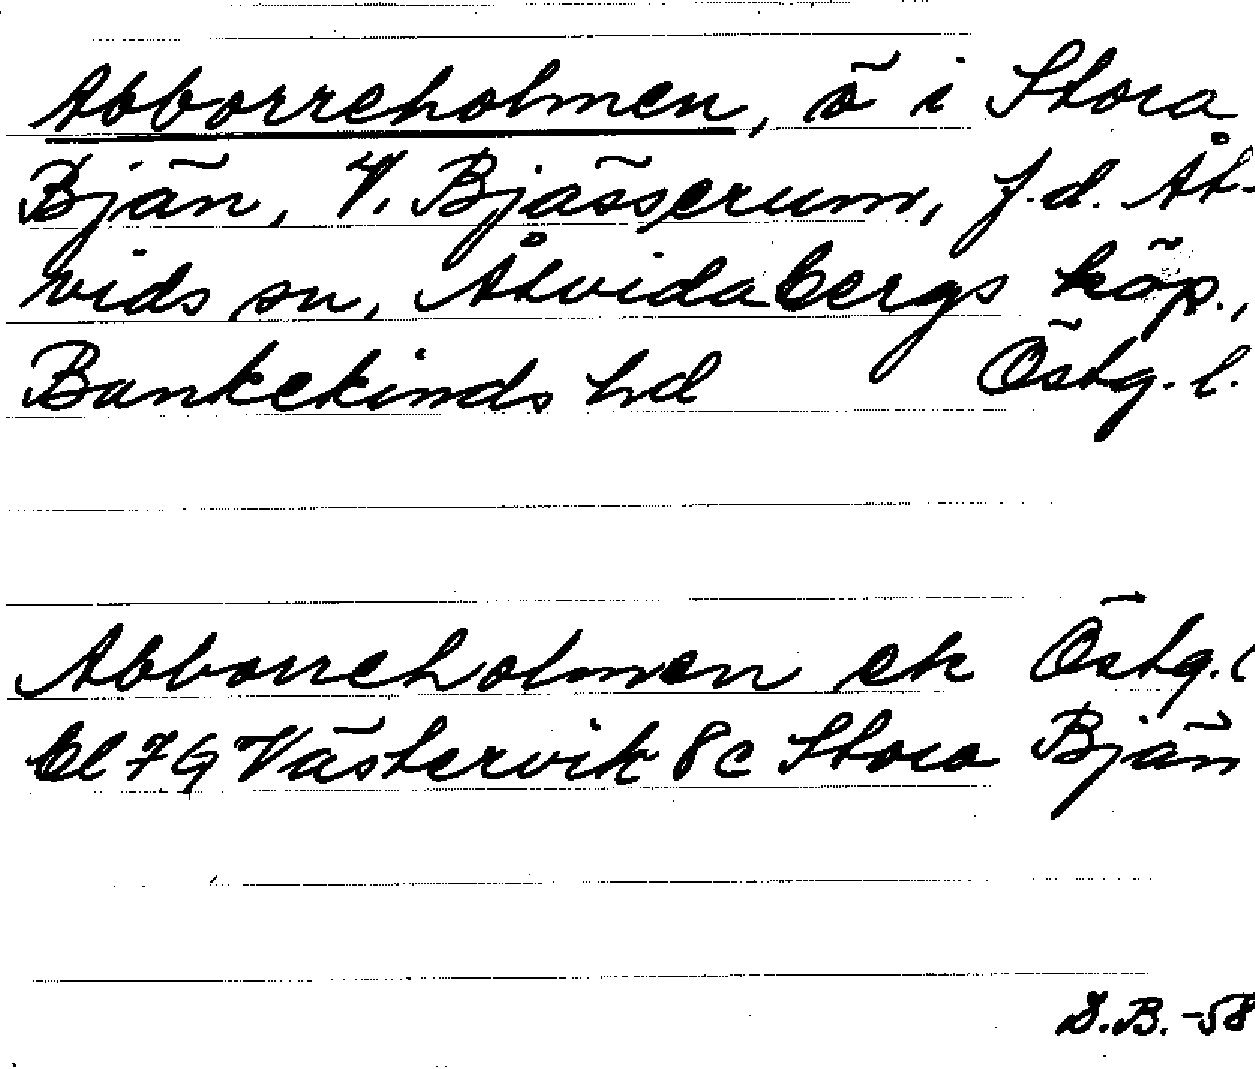 Abborreholmen, ö i Stora
Bjän, V. Bjässerum, f.d. Åt-
vids sn, Åtvidabergs köp.,
Bankekinds hd Östg. l.
Abborreholmen ek Östg. l
Bl 7G Västervik 8c Stora Bjän
S.B. -58